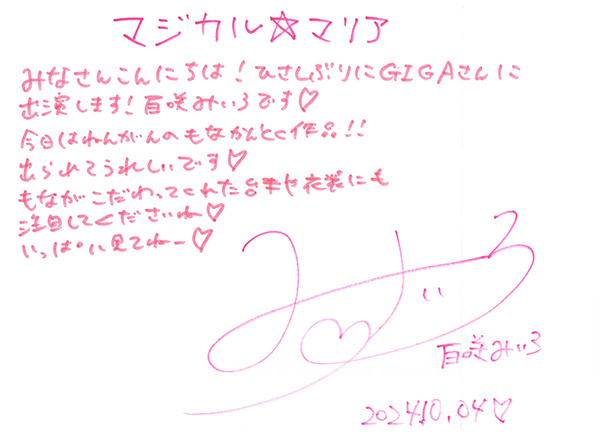 マジカル☆マリア
みなさんこんにちは！ひさしぶりにGIGAさんに
出演します！百咲みいろです♡
今日はねんがんのもなかんとく作品!!
出られてうれしいです♡
もながこだわってくれた台本や衣装にも
注目してくださいね♡
いっぱい見てねー♡
みいろ
百咲みいろ
2024.10.04♡